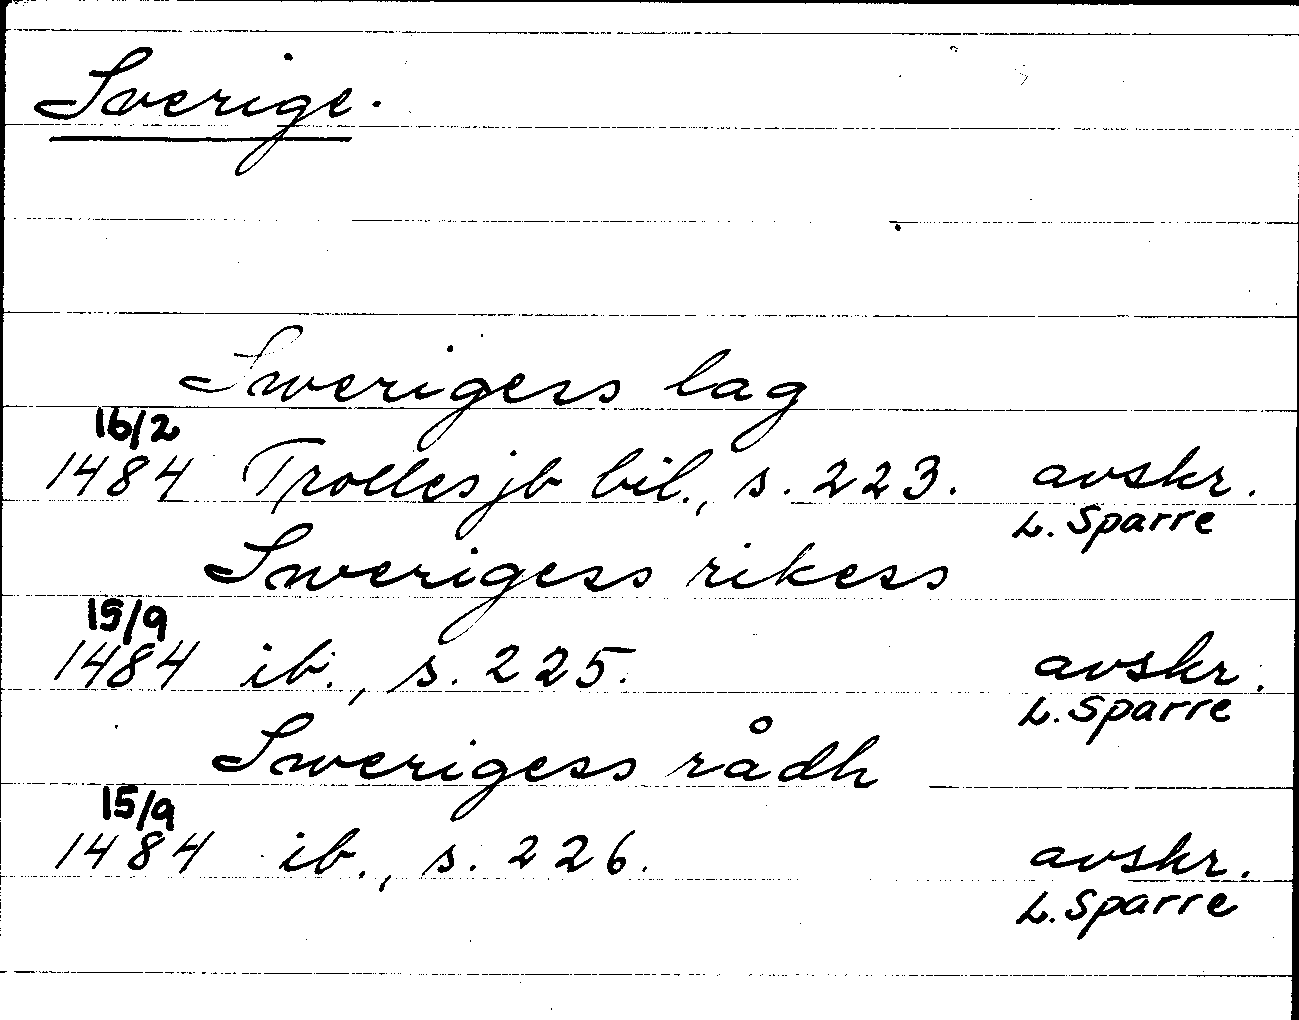 Sverige.
Swerigess lag
16/2
1484 Trolles jb bil., s. 223. avskr.
L. Sparre
Swerigess rikess
15/9
1484 ib., s. 225. avskr.
L. Sparre
Swerigess rådh
15/9
1484 ib., s. 226. avskr.
L. Sparre